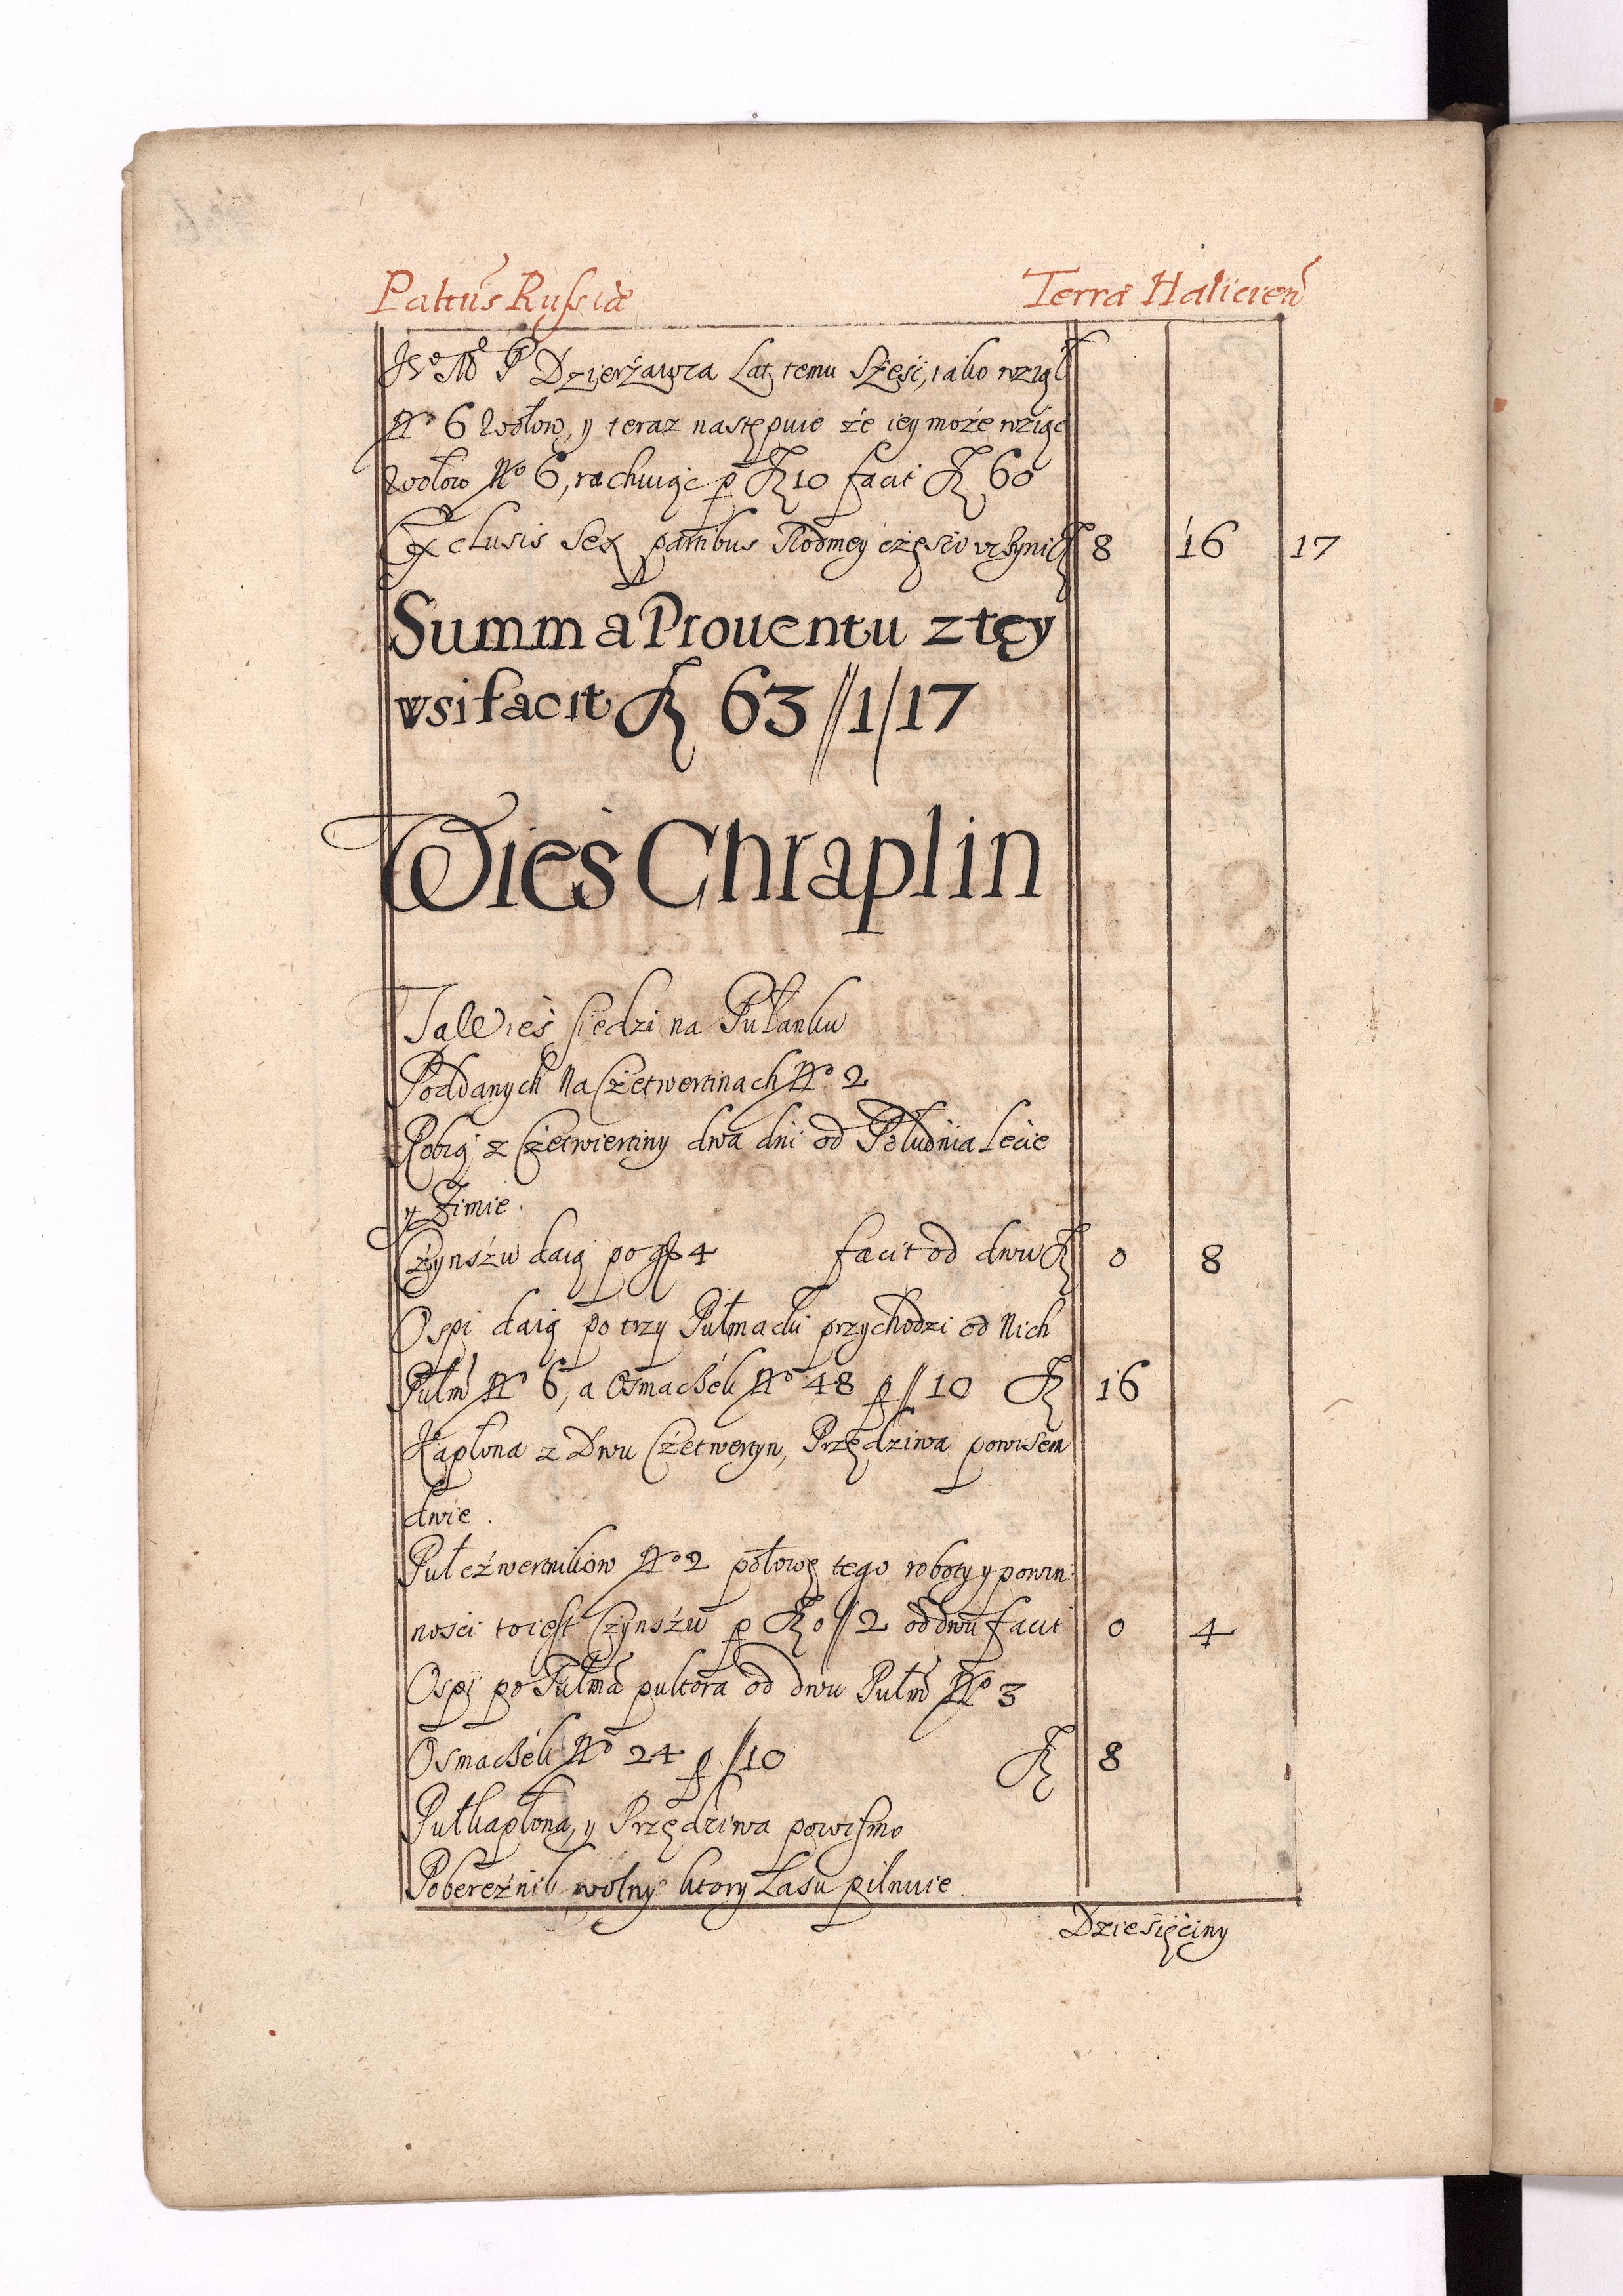 Paltus Russiæ Terræ Halicien
Je° Mć P Dzierżawca Lat temu Sżeść, iako wziął
N° 6 Wołow, y teraz następuie że iey może wziąć
Wołow N° 6, rachuiąc p fl 10 facit fl 60
Exclusis Sex partibus Siodmey części vczyni fl 8 16 17
Summa Prouentu z tęy
wsi facit fl 63//1/17
Wieś Chraplin
Ta Wieś siedzi na Pułanku
Poddanych Na Czetwertinach N° 2
Robią z Czetwiertiny dwa dni od Południa Lecie
y Zimie.
Czynszu daią po gł 4 facit od dwu fl 0 8
Ospi daią po trzy Pułmacki przychodzi od Nich
Pułm N° 6, a Osmaczek N° 48 p // 10 fl 16
Kapłona z Dwu Czetwertyn, Przędziwa powisem
dwie.
Pułczwertnikow N° 2 połowę tego roboty y powin:
nosci toiest Czynszu p fl 0 // 2 od dwu facit 0 4
Ospi po Pułma pultora od dwu Pułm N° 3
Osmaczek N° 24 p // 10 fl 8
Pułkapłona, y Przędziwa powismo
Pobereżnik wolny ktory Lasu pilnuie.
Dziesięciny